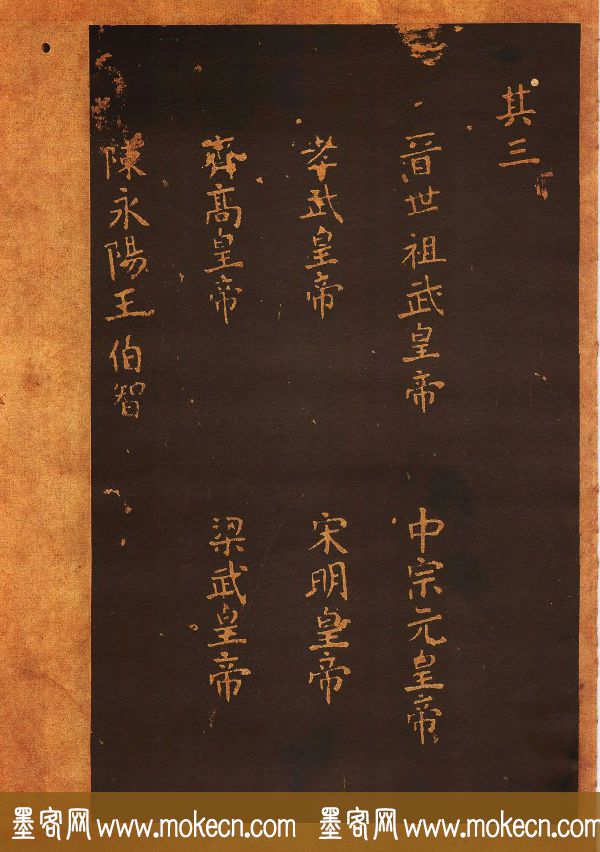 其三
晉世祖武皇帝 中宗元皇帝
孝武皇帝 宋明皇帝
齊高皇帝 梁武皇帝
陳永陽王伯智
墨客网 www.mokecn.com 墨客网 www.mokecn.com